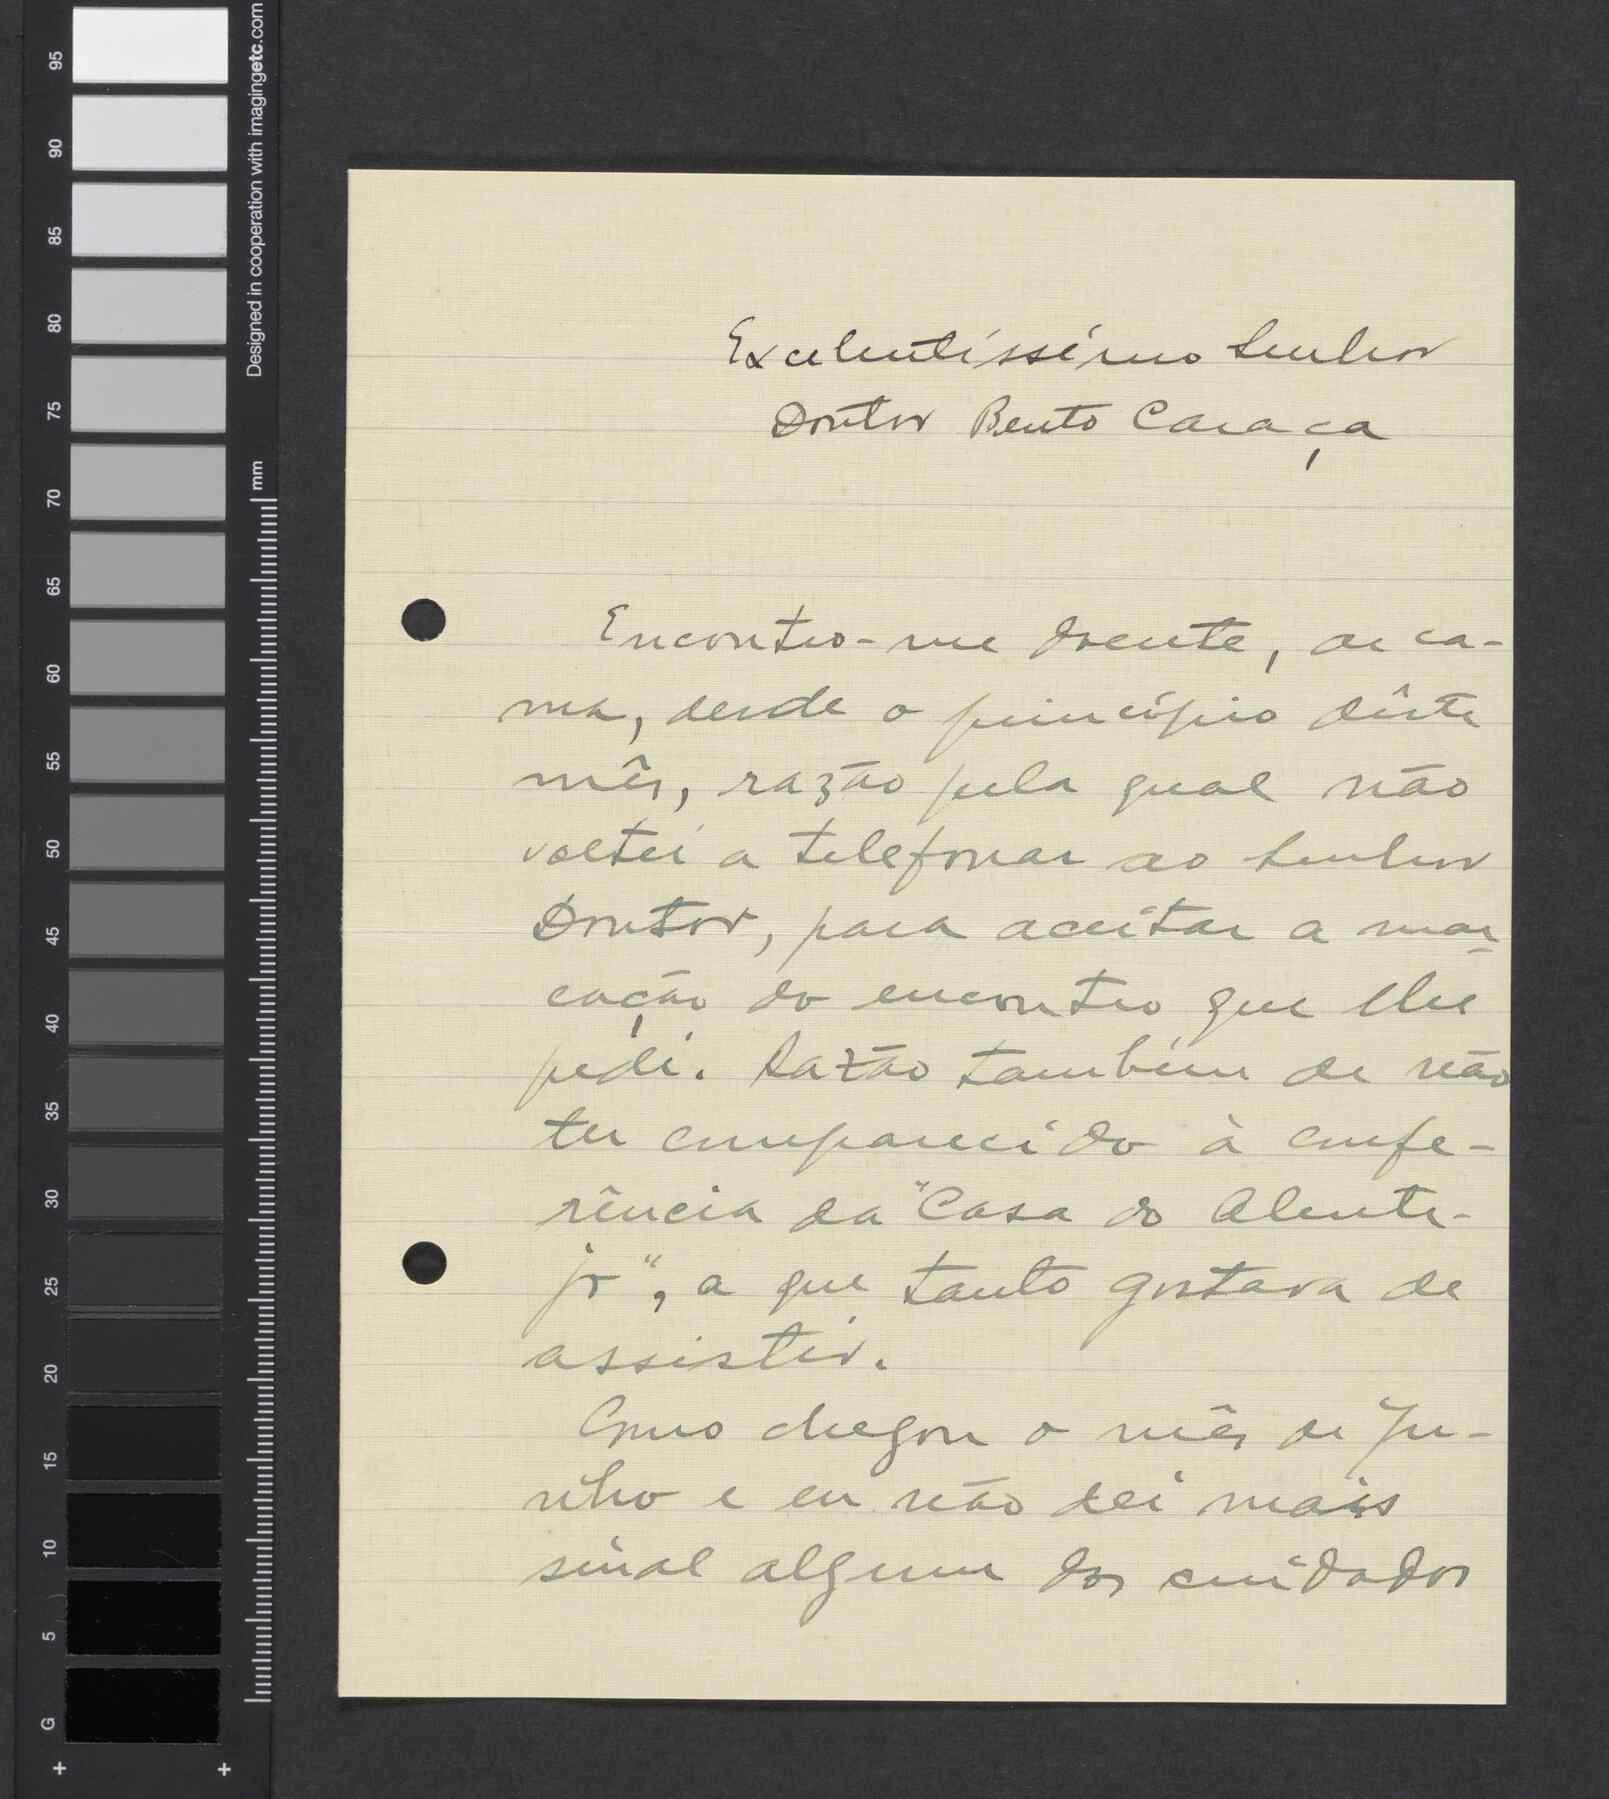 95
90
85
80
75
70
65
60
55
50
45
40
35
30
25
20
15
10
5
G
Designed in cooperation with imagingetc.com
mm
Excelentíssimo Senhor
Doutor Bento Caraça
Encontro-me doente, de ca-
ma, desde o princípio dêste
mês, razão pela qual não
voltei a telefonar ao Senhor
Doutor, para aceitar a mar-
cação do encontro que lhe
pedi. Razão também de não
ter comparecido à confe-
rência da "Casa do Alente-
jo", a que tanto gostava de
assistir.
Como chegou o mês de Ju-
nho e eu não dei mais
sinal algum dos cuidados